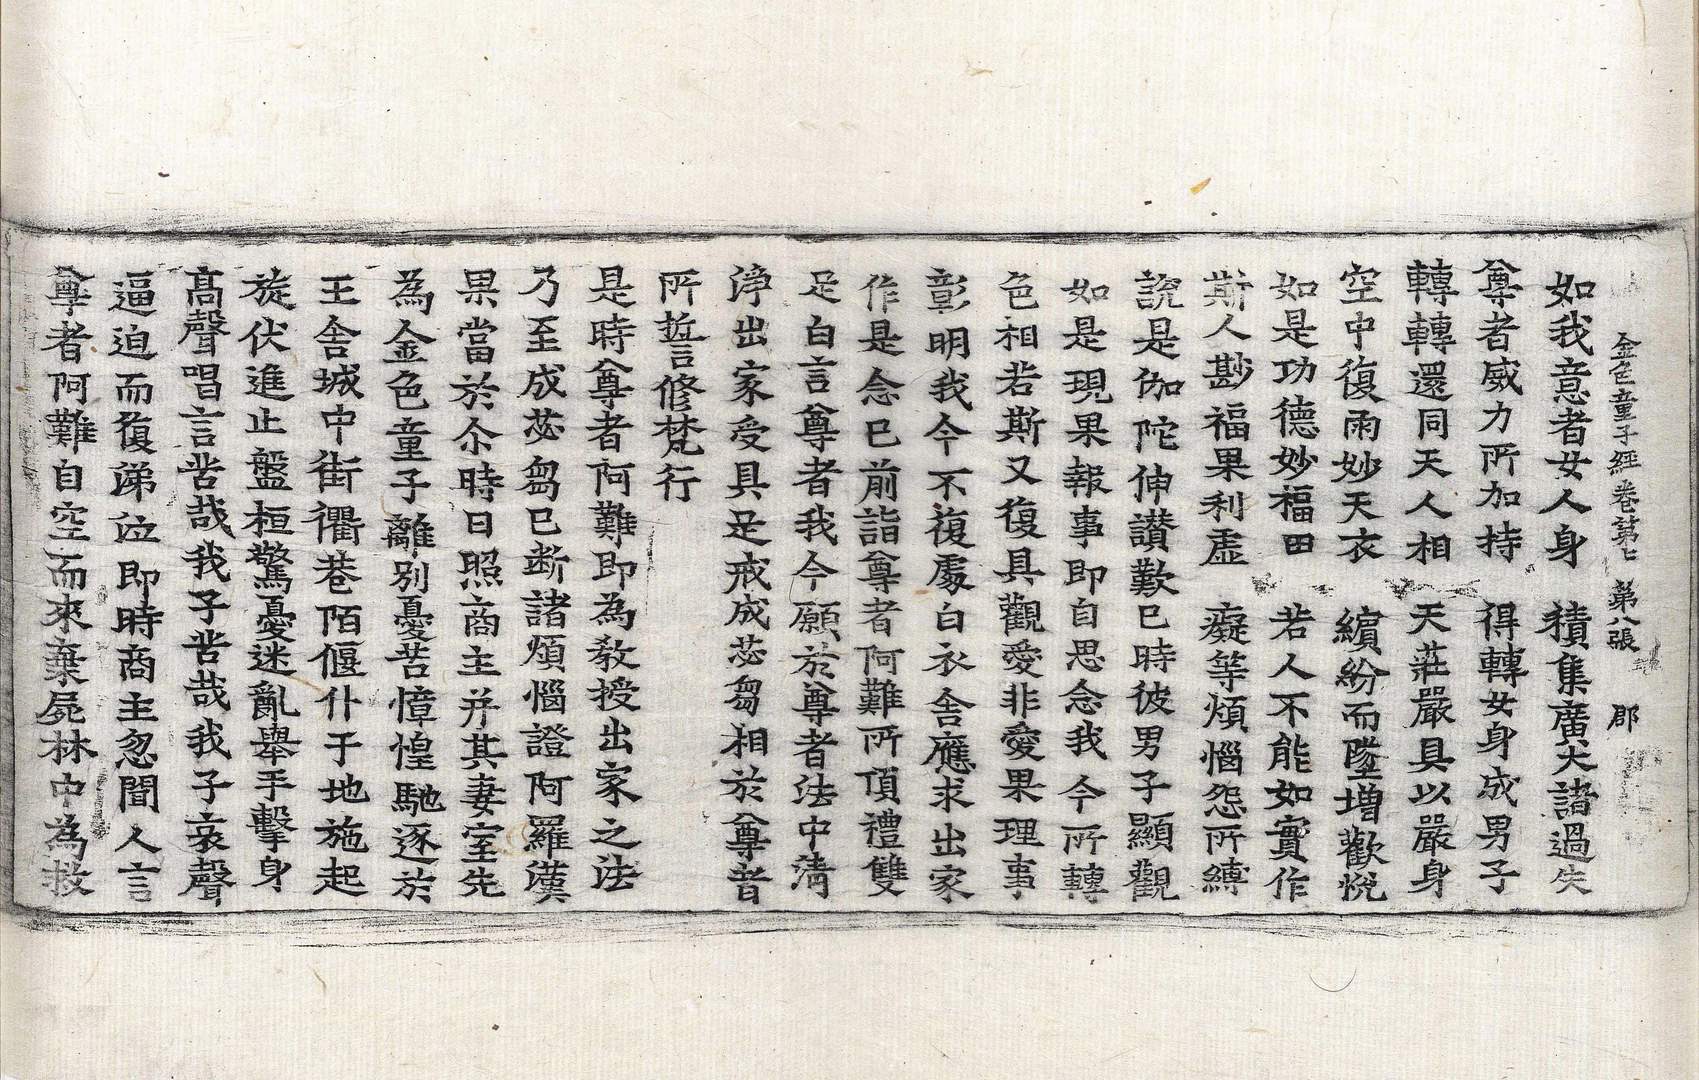 金色童子經卷第七 第八張 郡
如我意者女人身 積集廣大諸過失
尊者威力所加持 得轉女身成男子
轉轉還同天人相 天莊嚴具以嚴身
空中復雨妙天衣 繽紛而墜增歡悅
如是功德妙福田 若人不能如實作
斯人尠福果利虛 癡等煩惱怨所縛
說是伽陀伸讃歎已時彼男子顯觀
如是現果報事即自思念我今所轉
色相若斯又復具觀愛非愛果理事
彰明我今不復處白衣舍應求出家
作是念已前詣尊者阿難所頂禮雙
足白言尊者我今願於尊者法中清
淨出家受具足戒成苾芻相於尊者
所誓修梵行
是時尊者阿難即為教授出家之法
乃至成苾芻已斷諸煩惱證阿羅漢
果當於尒時日照商主并其妻室先
為金色童子離別憂苦憧惶馳逐於
王舍城中街衢巷陌偃仆于地施起
旋伏進止盤桓驚憂迷亂舉手擊身
高聲唱言苦哉我子苦哉我子哀聲
逼迫而復涕泣即時商主忽聞人言
尊者阿難自空而來棄屍林中為救